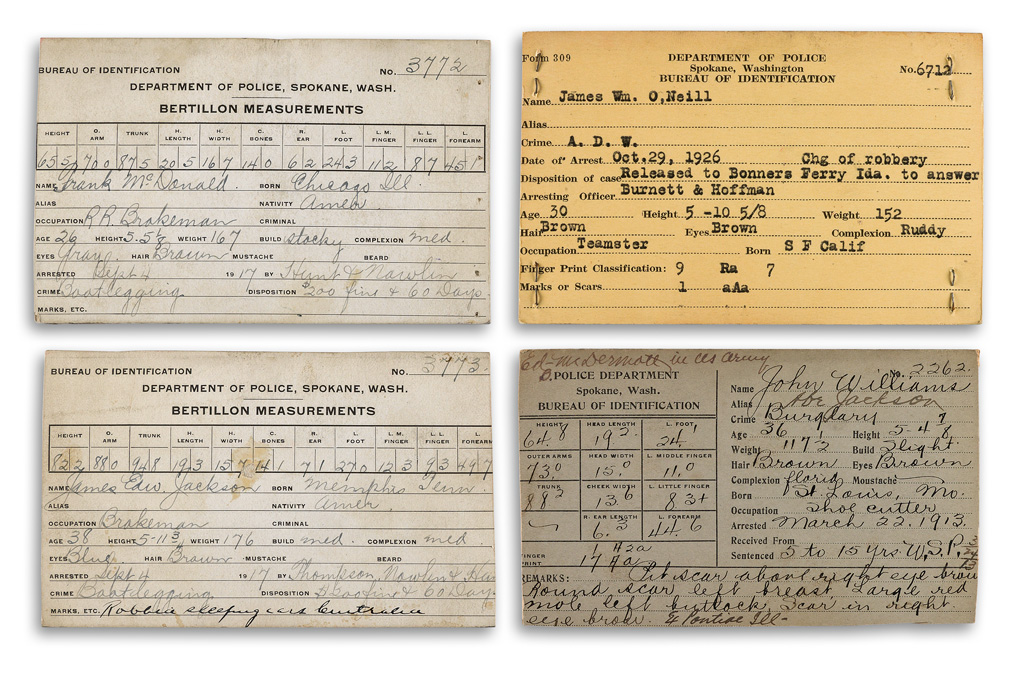 BUREAU OF IDENTIFICATION No. 3772
DEPARTMENT OF POLICE, SPOKANE, WASH.
BERTILLON MEASUREMENTS
HEIGHT O. ARM TRUNK H. LENGTH H. WIDTH C. BONES R. EAR L. FOOT L. M. FINGER L. L. FINGER L. FOREARM
70 0 87 5 20 5 16 7 14 0 6 2 24 3 11 2 8 7 45
NAME Frank McDonald. BORN Chicago Ill
ALIAS NATIVITY Amer.
OCCUPATION R.R. Brakeman CRIMINAL
AGE 26 HEIGHT 5-5 1/8 WEIGHT 167 BUILD stocky COMPLEXION med.
EYES Gray. HAIR Brown MUSTACHE BEARD
ARRESTED Sept 4 1917 BY Hunt & Nowlin
CRIME Bootlegging DISPOSITION $200 fine & 60 Days.
MARKS, ETC.
Form 309 DEPARTMENT OF POLICE
Spokane, Washington No. 6712
BUREAU OF IDENTIFICATION
Name James Wm. O,Neill
Alias
Crime A. D. W.
Date of Arrest Oct.29, 1926 Chg of robbery
Disposition of case Released to Bonners Ferry Ida. to answer
Arresting Officer Burnett & Hoffman
Age 30 Height 5 -10 5/8 Weight 152
Hair Brown Eyes Brown Complexion Ruddy
Occupation Teamster Born S F Calif
Finger Print Classification: 9 Ra 7
Marks or Scars 1 aAa
BUREAU OF IDENTIFICATION No. 3773
DEPARTMENT OF POLICE, SPOKANE, WASH.
BERTILLON MEASUREMENTS
HEIGHT O. ARM TRUNK H. LENGTH H. WIDTH C. BONES R. EAR L. FOOT L. M. FINGER L. L. FINGER L. FOREARM
82 2 88 0 94 8 19 3 15 7 14 1 7 1 27 0 12 3 9 3 49 7
NAME James Edw. Jackson BORN Memphis Tenn.
ALIAS NATIVITY Amer.
OCCUPATION Brakeman CRIMINAL
AGE 38 HEIGHT 5-11 3/8 WEIGHT 176 BUILD med. COMPLEXION med
EYES Blue. HAIR Brown MUSTACHE BEARD
ARRESTED Sept 4 1917 BY Thompson, Nowlin &
CRIME Bootlegging DISPOSITION $200 fine & 60 Days
MARKS, ETC. Robbing sleeping cars
Ed- McDermott in US Army
POLICE DEPARTMENT
Spokane, Wash.
BUREAU OF IDENTIFICATION
HEIGHT HEAD LENGTH L. FOOT
64.8 19 3. 24.1
OUTER ARMS HEAD WIDTH L. MIDDLE FINGER
73.0 15.0 11.0
TRUNK CHEEK WIDTH L. LITTLE FINGER
88 2 13 6 8 3+
R. EAR LENGTH L. FOREARM
6.3 44.6
FINGER PRINT
No. 2262.
Name John Williams
Alias Joe Jackson
Crime Burglary
Age 36 Height 5-4 7/8
Weight 117 1/2 Build Slight.
Hair Brown Eyes Brown
Complexion florid Moustache
Born St. Louis, Mo.
Occupation Shoe cutter
Arrested March 22. 1913.
Received From
Sentenced 5 to 15 yrs W.S.P.
REMARKS: Pit scar above right eye brow
Round scar left breast. Large red
mole left buttock, Scar in right
eye brow. Pontiac Ill-